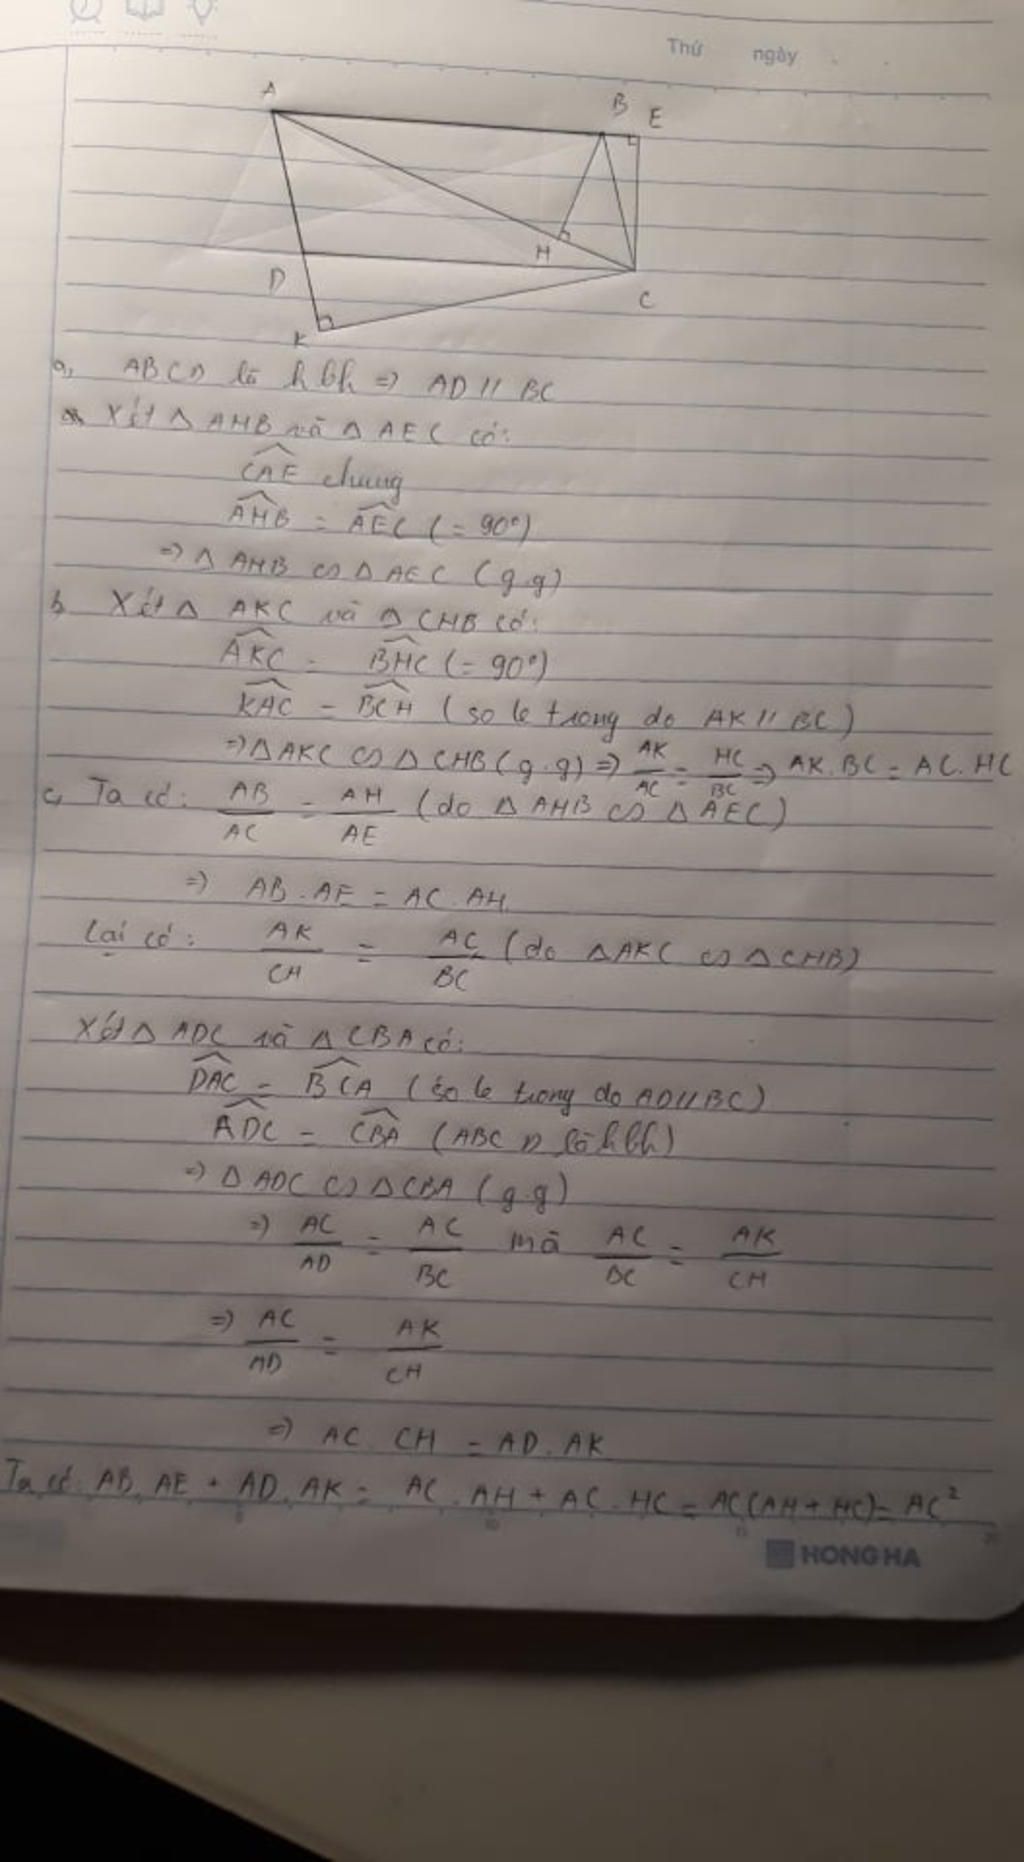 Thứ ngày
A B E
D H C
K
a, ABCD là hbh => AD // BC
Xét △ AHB và △ AEC có:
\widehat{CAE} chung
\widehat{AHB} = \widehat{AEC} (= 90°)
=> △ AHB ∽ △ AEC (g.g)
b, Xét △ AKC và △ CHB có:
\widehat{AKC} = \widehat{BHC} (= 90°)
\widehat{KAC} = \widehat{BCH} (so le trong do AK // BC)
=> △ AKC ∽ △ CHB (g.g) => AK/AC = HC/BC => AK.BC = AC.HC
c, Ta có: AB/AC = AH/AE (do △ AHB ∽ △ AEC)
=> AB.AE = AC.AH
Lại có: AK/CH = AC/BC (do △ AKC ∽ △ CHB)
Xét △ ADC và △ CBA có:
\widehat{DAC} = \widehat{BCA} (so le trong do AD // BC)
\widehat{ADC} = \widehat{CBA} (ABCD là hbh)
=> △ ADC ∽ △ CBA (g.g)
=> AC/AD = AC/BC mà AC/BC = AK/CH
=> AC/AD = AK/CH
=> AC.CH = AD.AK
Ta có: AB.AE + AD.AK = AC.AH + AC.HC = AC(AH + HC) = AC²
HONG HA